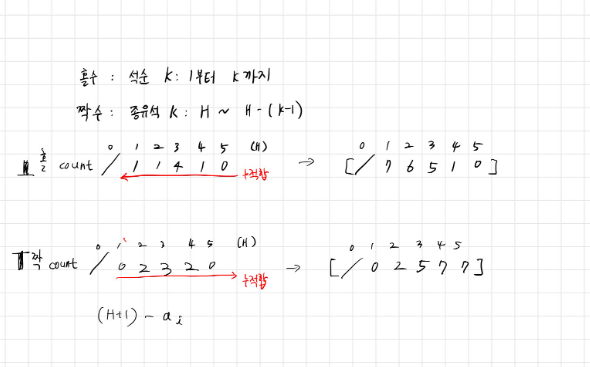 홀수 : 석순 K : 1부터 K까지
짝수 : 종유석 K : H ~ H-(K-1)
0 1 2 3 4 5 (H)
홀 count / 1 1 4 1 0 누적합 → [ / 7 6 5 1 0 ]
0 1 2 3 4 5
0 1 2 3 4 5 (H)
짝 count / 0 2 3 2 0 누적합 → [ / 0 2 5 7 7 ]
0 1 2 3 4 5
(H+1) - a i